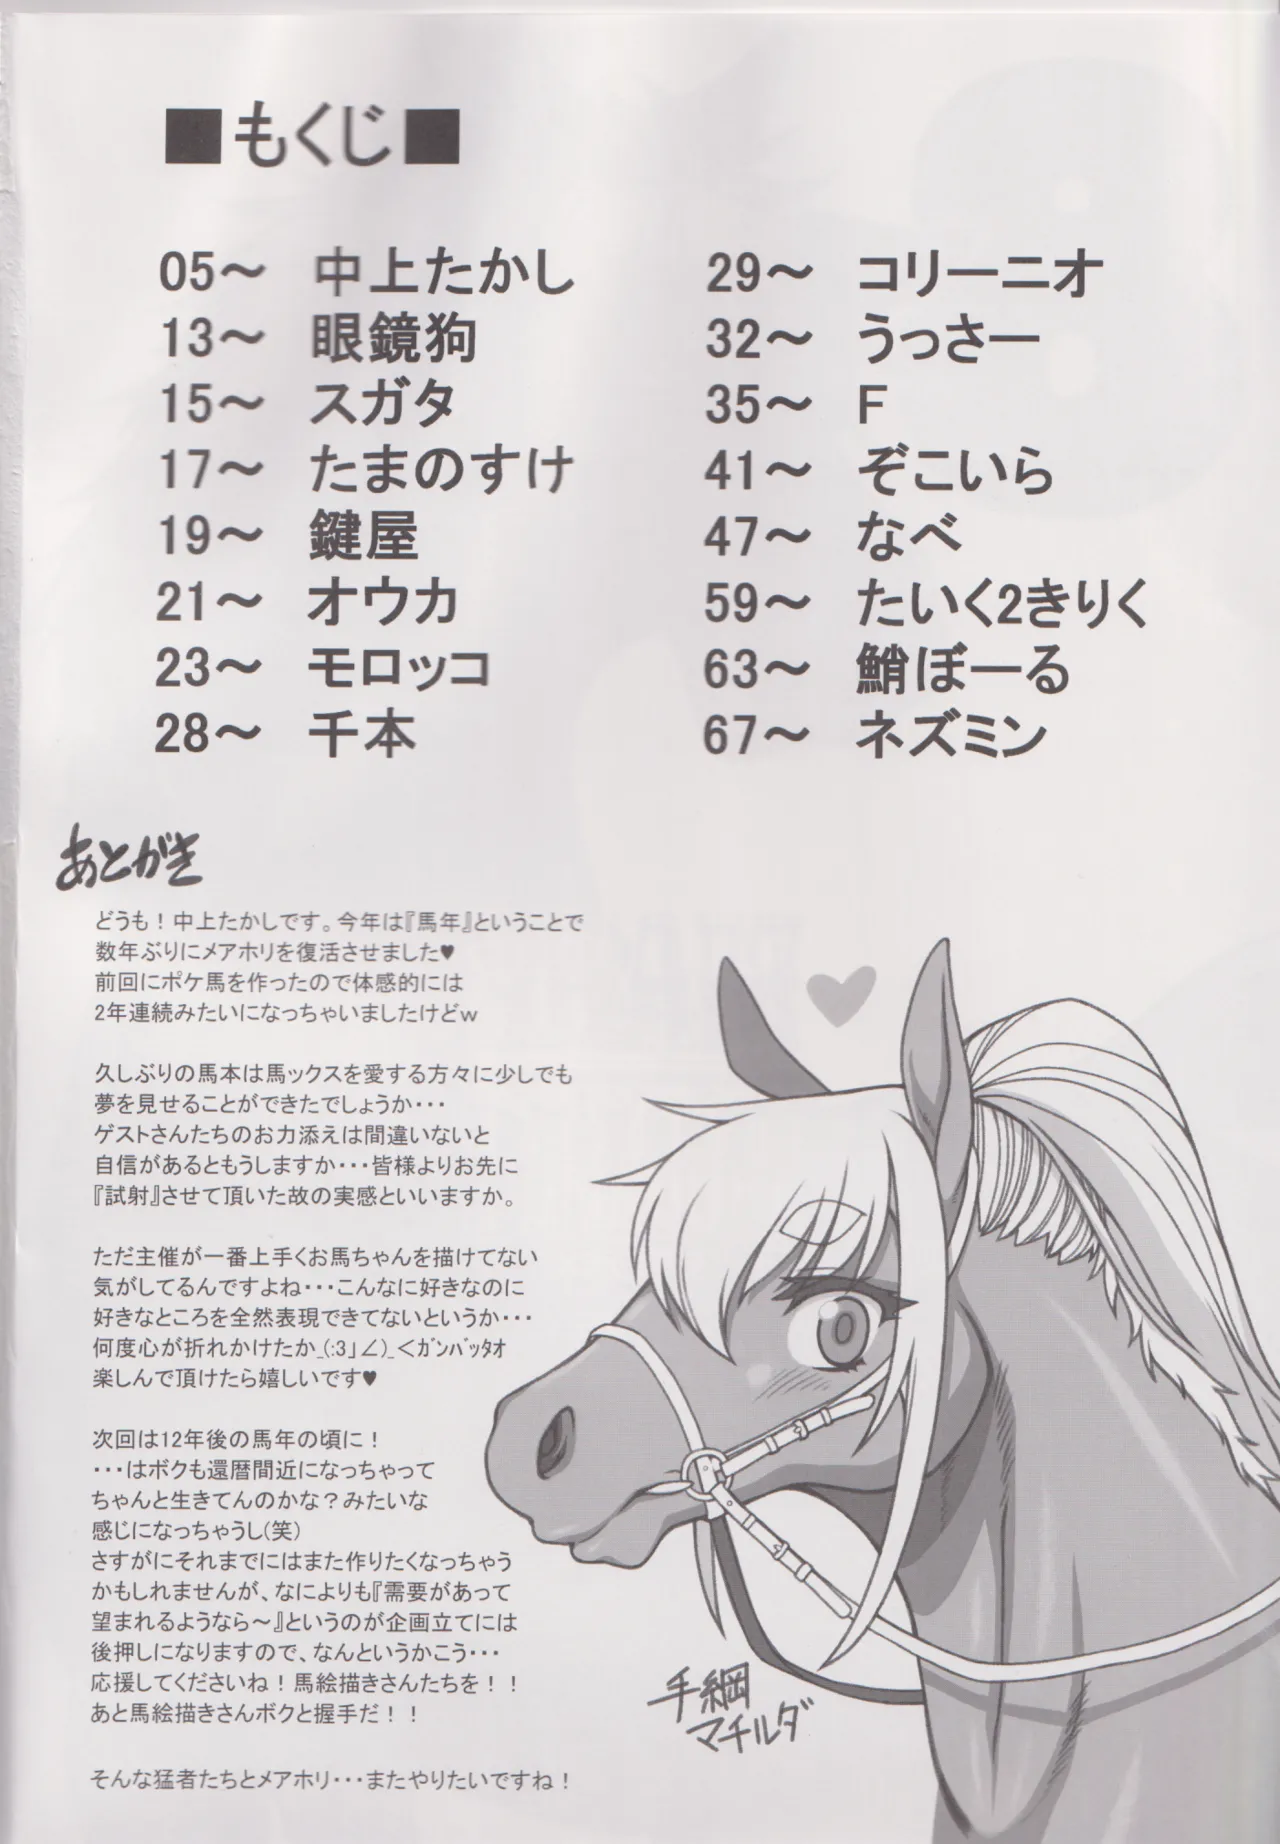 ■もくじ■
05～ 中上たかし
13～ 眼鏡狗
15～ スガタ
17～ たまのすけ
19～ 鍵屋
21～ オウカ
23～ モロッコ
28～ 千本
29～ コリーニオ
32～ うっさー
35～ F
41～ ぞこいら
47～ なべ
59～ たいく2きりく
63～ 鮹ぼーる
67～ ネズミン
あとがき
どうも！中上たかしです。今年は『馬年』ということで
数年ぶりにメアホリを復活させました♥
前回にポケ馬を作ったので体感的には
2年連続みたいになっちゃいましたけどw
久しぶりの馬本は馬ックスを愛する方々に少しでも
夢を見せることができたでしょうか・・・
ゲストさんたちのお力添えは間違いないと
自信があるともうしますか・・・皆様よりお先に
『試射』させて頂いた故の実感といいますか。
ただ主催が一番上手くお馬ちゃんを描けてない
気がしてるんですよね・・・こんなに好きなのに
好きなところを全然表現できてないというか・・・
何度心が折れかけたか_(:3」∠)_＜ｶﾞﾝﾊﾞｯﾀｵ
楽しんで頂けたら嬉しいです♥
次回は12年後の馬年の頃に！
・・・はボクも還暦間近になっちゃって
ちゃんと生きてんのかな？みたいな
感じになっちゃうし(笑)
さすがにそれまでにはまた作りたくなっちゃう
かもしれませんが、なによりも『需要があって
望まれるようなら～』というのが企画立てには
後押しになりますので、なんというかこう・・・
応援してくださいね！馬絵描きさんたちを！！
あと馬絵描きさんボクと握手だ！！
そんな猛者たちとメアホリ・・・またやりたいですね！
手綱
マチルダ